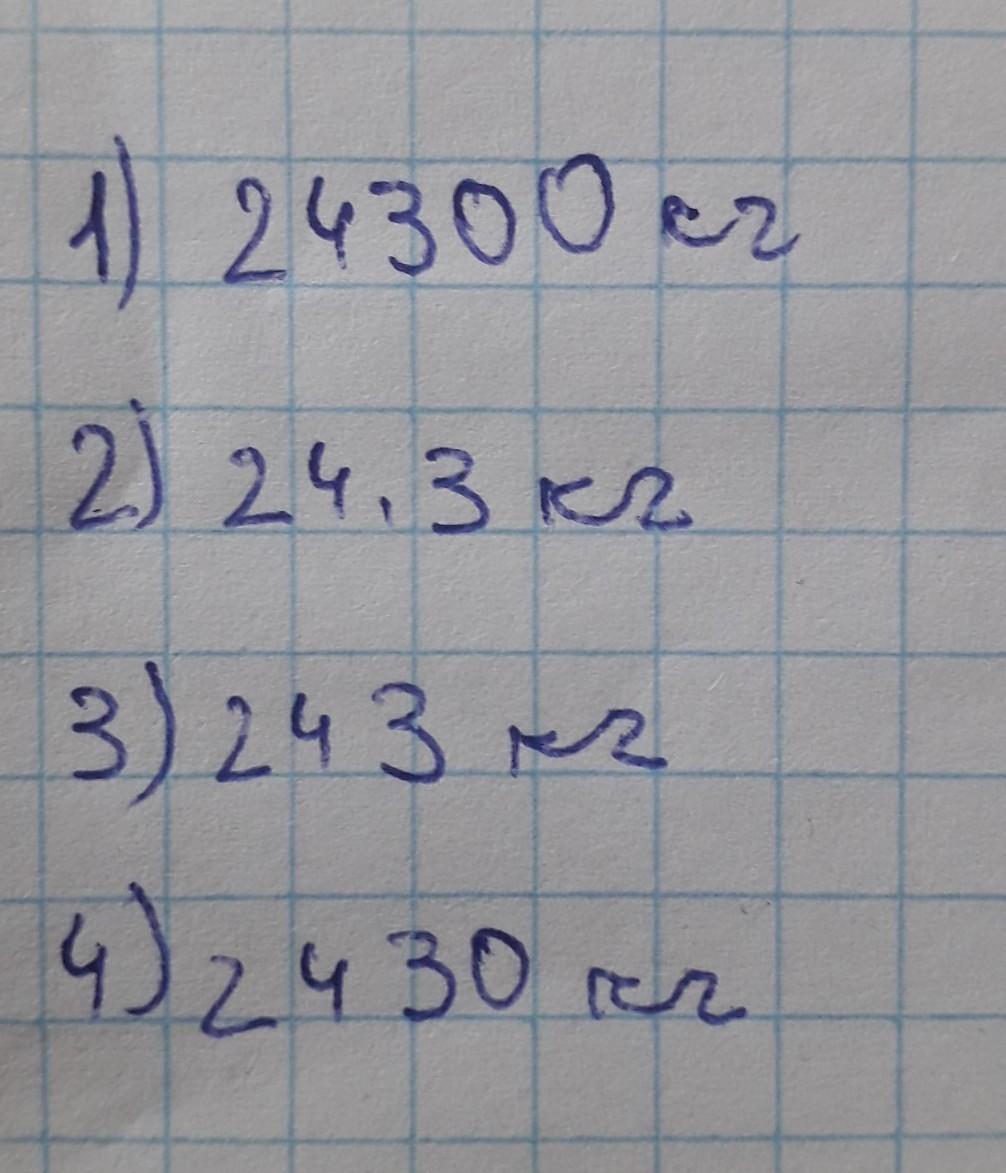 1) 24300 кг
2) 24.3 кг
3) 243 кг
4) 2430 кг